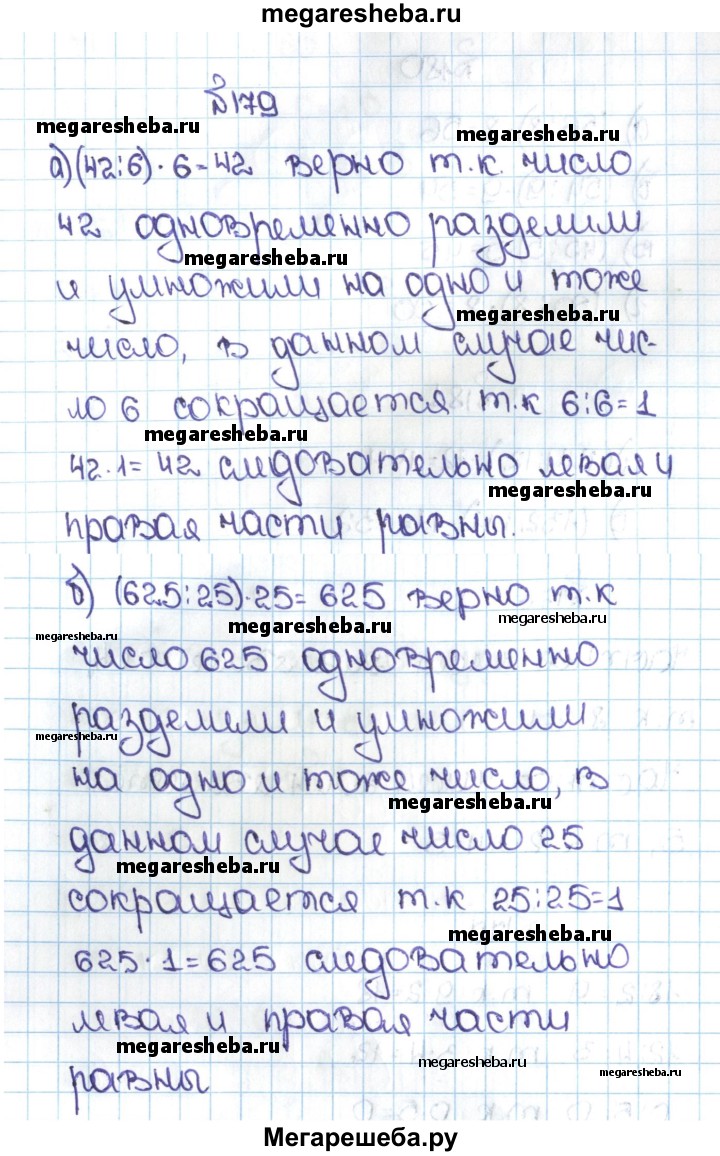 megaresheba.ru
№179
megaresheba.ru
megaresheba.ru
а)(42:6)·6=42 верно т.к. число
42 одновременно разделили
megaresheba.ru
и умножили на одно и тоже
megaresheba.ru
число, в данном случае чис-
ло 6 сокращается т.к 6:6=1
megaresheba.ru
42·1=42 следовательно левая и
megaresheba.ru
правая части равны.
б) (625:25)·25=625 верно т.к
megaresheba.ru
megaresheba.ru
megaresheba.ru
число 625 одновременно
разделили и умножили
megaresheba.ru
на одно и тоже число, в
megaresheba.ru
данном случае число 25
megaresheba.ru
сокращается т.к 25:25=1
megaresheba.ru
625·1=625 следовательно
левая и правая части
megaresheba.ru
megaresheba.ru
megaresheba.ru
равны
Мегарешеба.ру